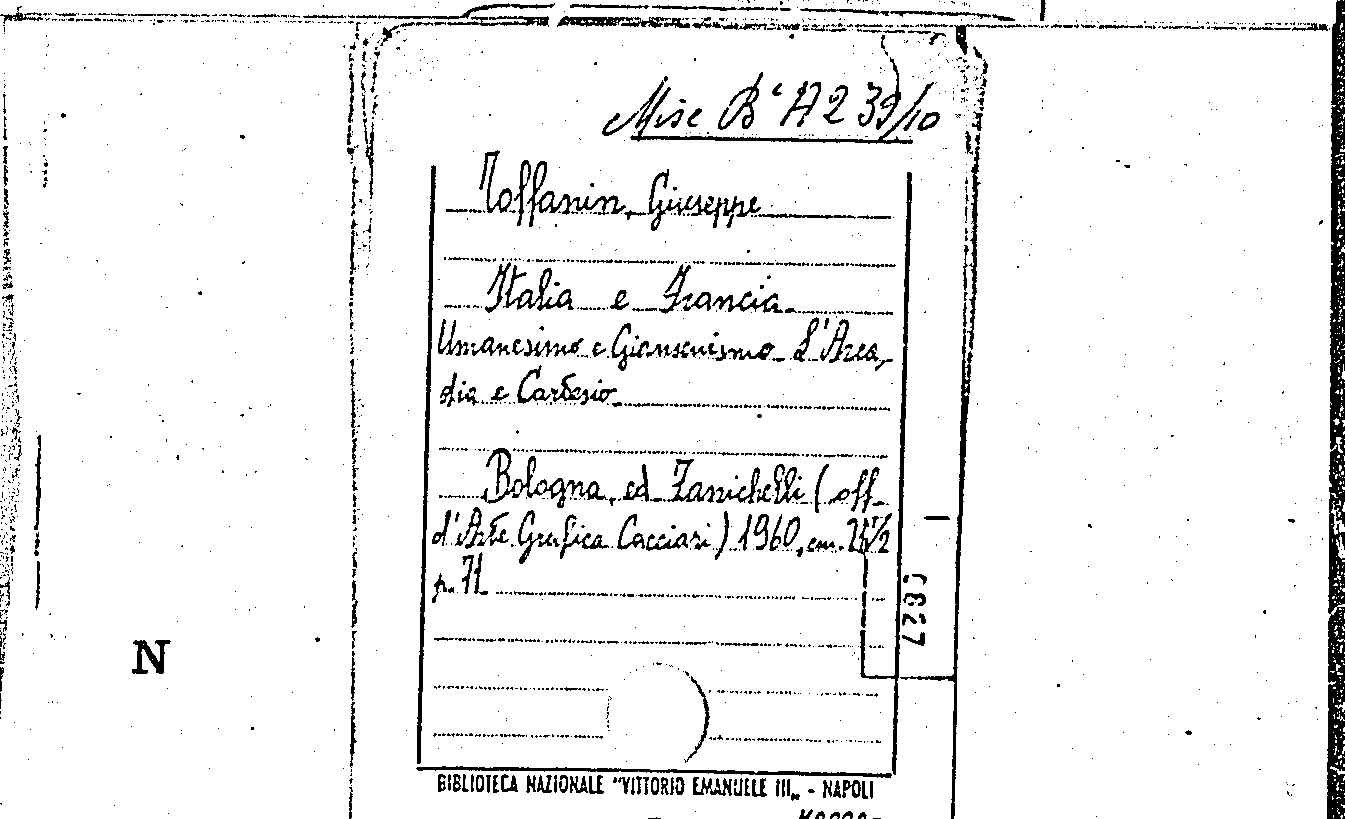 Misc Bª A 239/10
Toffanin, Giuseppe
Italia e Francia.
Umanesimo e Giansenismo. L'Arca,
dia e Cartesio.
Bologna, ed Zanichelli (off.
d'Arte Grafica Cacciari) 1960, cm. 21½
p. 71.
7827
N
BIBLIOTECA NAZIONALE "VITTORIO EMANUELE III„ - NAPOLI